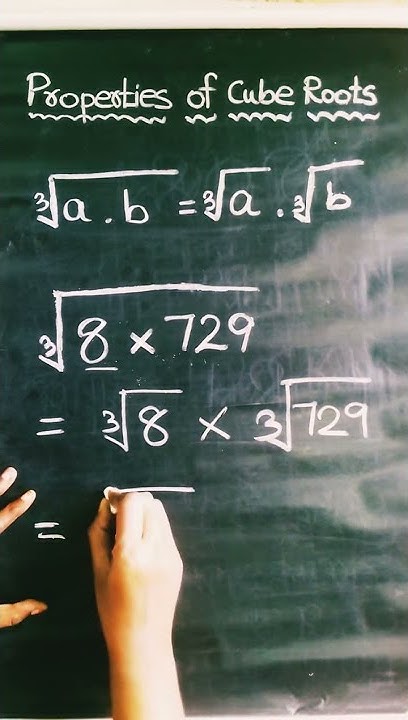 Properties of Cube Roots
∛(a . b) = ∛a . ∛b
∛(8 × 729)
= ∛8 × ∛729
=